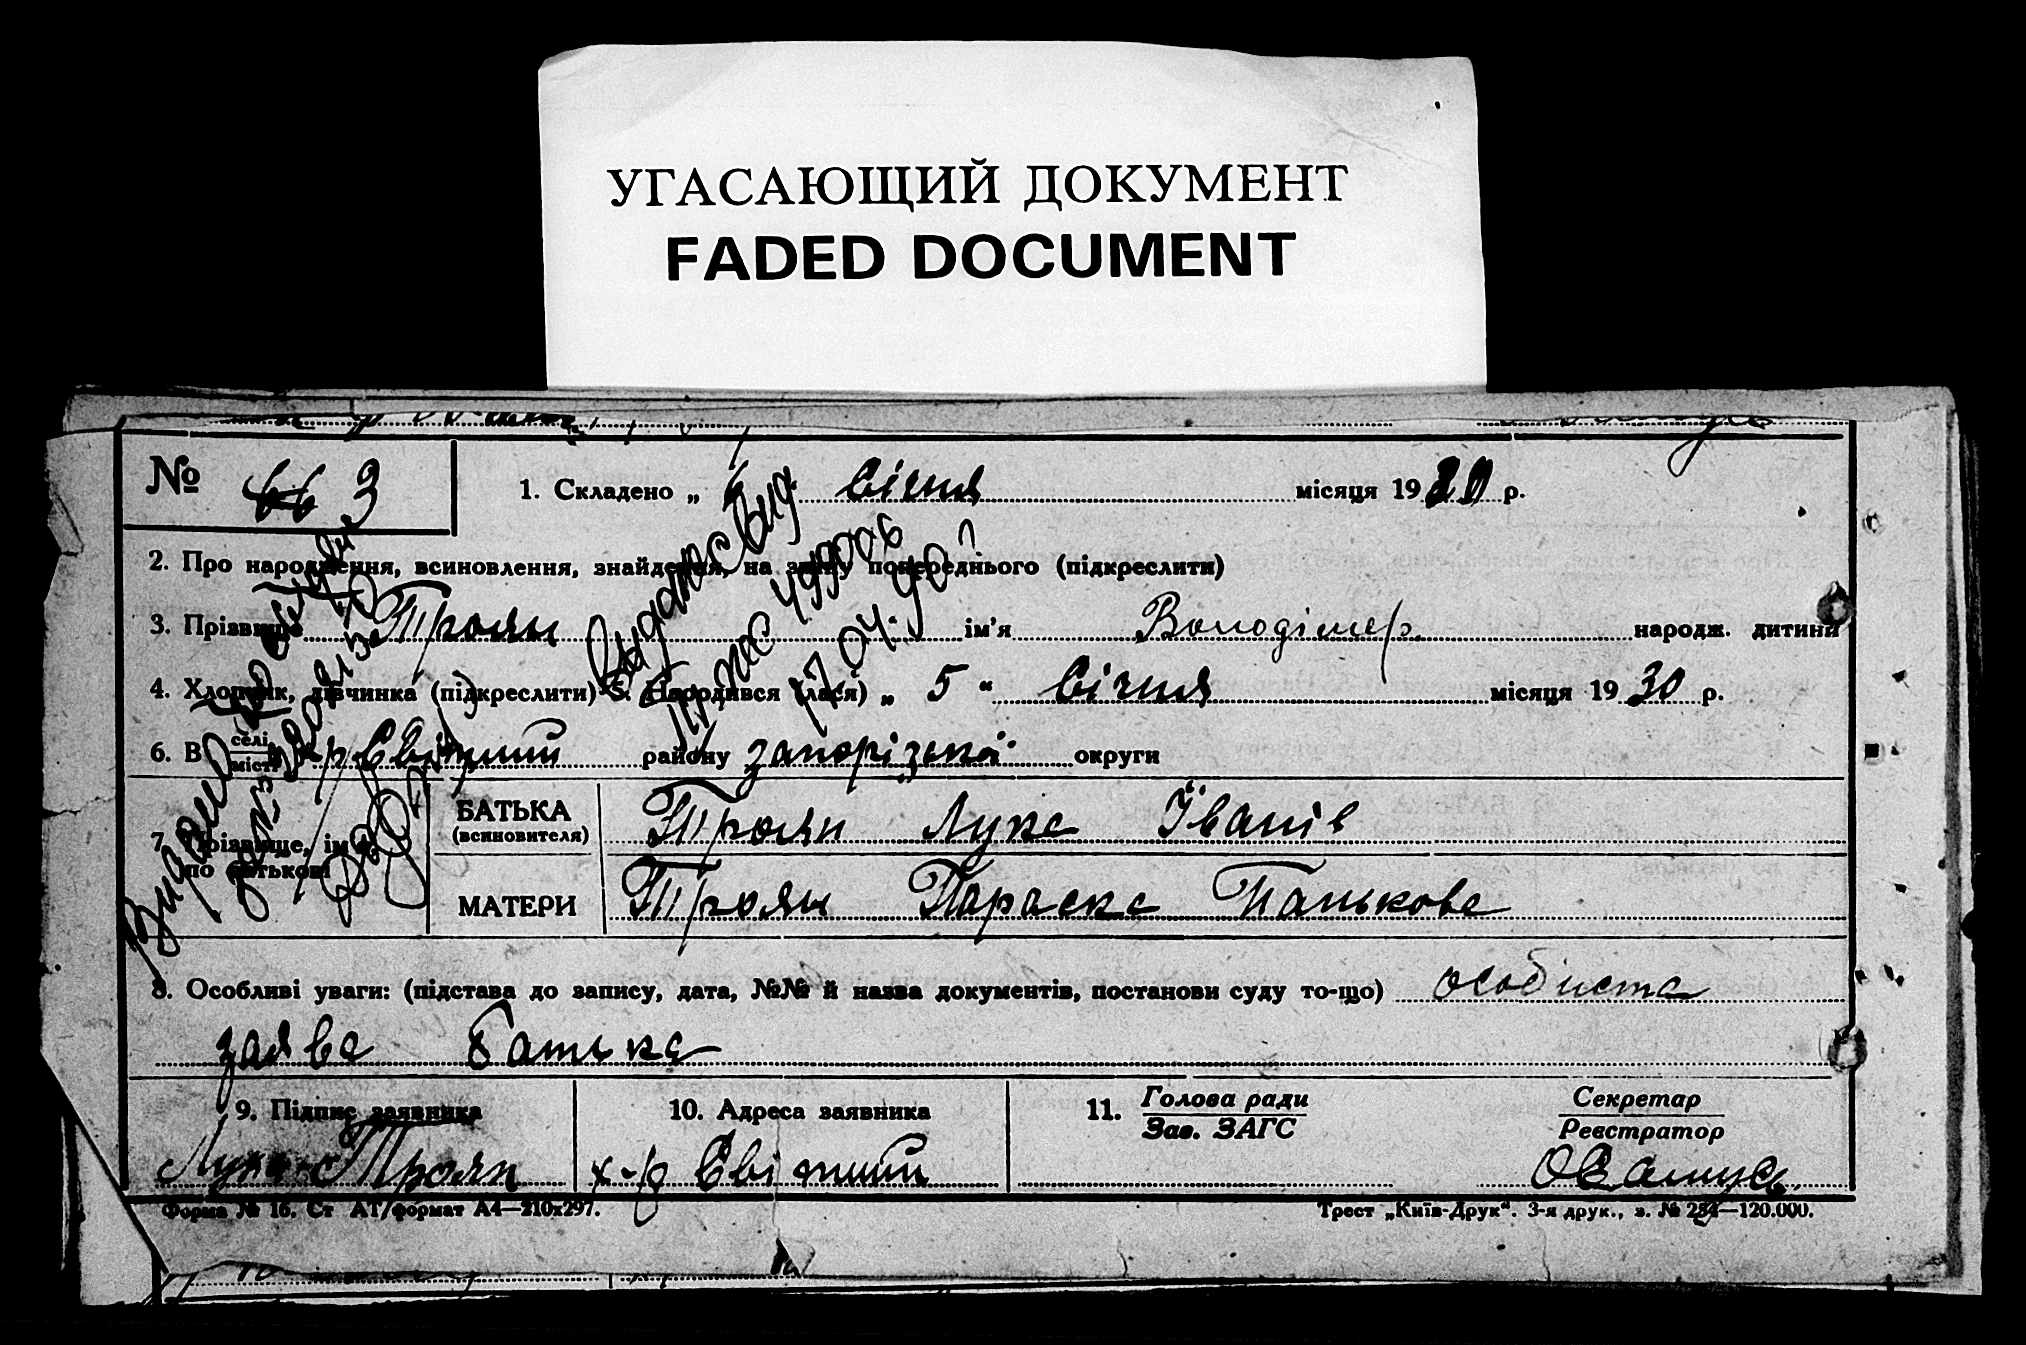 УГАСАЮЩИЙ ДОКУМЕНТ
FADED DOCUMENT
№ 3
1. Складено „ 6 " січня місяця 1930 р.
2. Про народження, всиновлення, знайдення, на зміну попереднього (підкреслити)
3. Прізвище Троян ім'я Володімер народж. дитини
4. Хлопчик, дівчинка (підкреслити) 5. Народився (лася) „ 5 “ січня місяця 1930 р.
6. В селі місті х-р Світлий району запорізької округи
7. Прізвище, ім'я по батькові
БАТЬКА (всиновителя) Троян Лука Іванів
МАТЕРИ Троян Параска Панькова
8. Особливі уваги: (підстава до запису, дата, №№ й назва документів, постанови суду то-що) особиста
заява батька
9. Підпис заявника 10. Адреса заявника 11. Голова ради Зав. ЗАГС Секретар Реєстратор
Лука Троян х-р Світлий
Форма № 16. Ст АТ/формат А4—210х297. Трест „Київ-Друк“. 3-я друк., з. № 254—120.000.
Видано свид.
499006
17.04.90 г